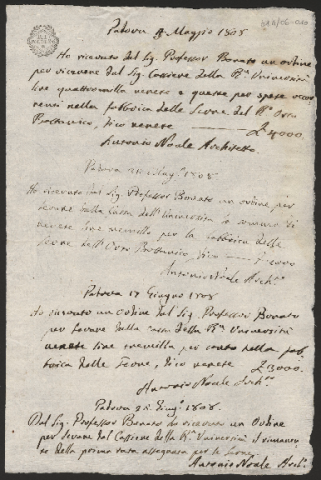 Padova 8 Maggio 1808
Ho ricevuto dal Sig. Professor Bonato un ordine
per ricevere dal Sig. Cassiere della Rª. Università
lire quattromilla venete e queste per spese occor
renti nella fabbrica delle Serre del Rº. Orto
Bottanico, dico venete £ 4000.
Antonio Noale Architetto
Padova 1808
Ho ricevuto dal Sig. Professor Bonato un ordine, per
levare dalla Cassa dell'Università la somma di
venete lire per la fabbrica delle
Serre dell'Orto Bottanico, dico
Antonio Noale Archº.
Padova 17 Giugno 1808
Ho ricevuto un ordine dal Sig. Professor Bonato
per levare dalla Cassa della Rª. Università
venete lire tremilla per conto della fab
brica delle Serre, dico venete £ 3000.
Antonio Noale Archº.
Padova 1808.
Dal Sig. Professor Bonato ho ricevuto un Ordine
per levare dal Cassiere della Rª. Università il rimanen
te della prima rata assegnata per le Serre.
Antonio Noale Archº.